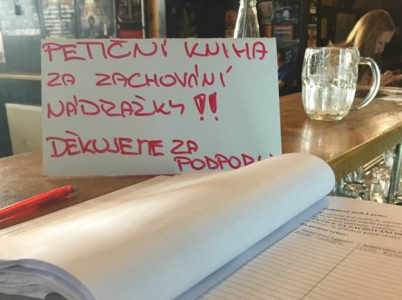 PETIČNÍ KNIHA
ZA ZACHOVÁNÍ
NÁDRAŽKY !!
DĚKUJEME ZA
PODPORU